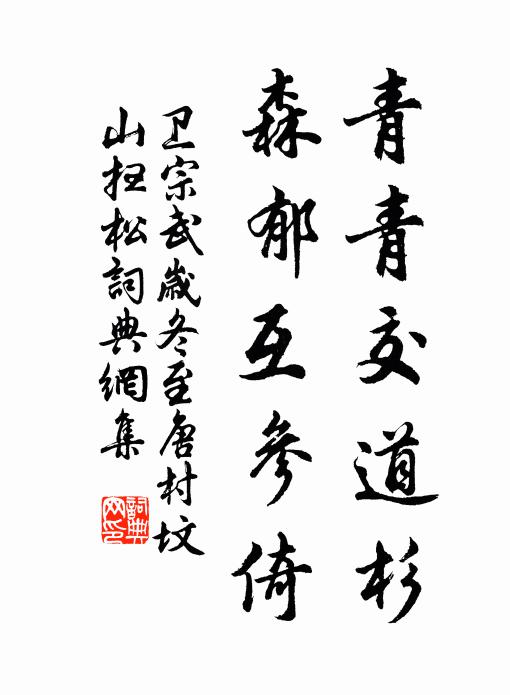 青青交道杉
森郁互參倚
卫宗武歲冬至唐村坟
山抂松詞典網集
詞典網印